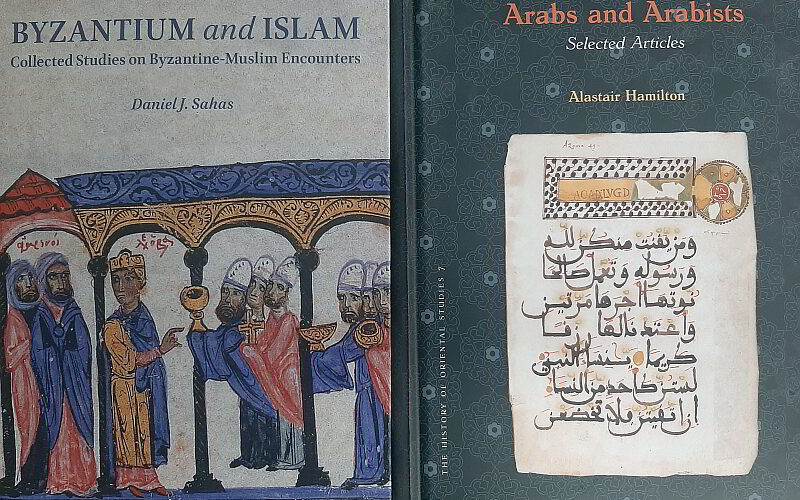 BYZANTIUM and ISLAM
Collected Studies on Byzantine-Muslim Encounters
Daniel J. Sahas
Arabs and Arabists
Selected Articles
Alastair Hamilton
THE HISTORY OF ORIENTAL STUDIES 7
ومن يقنت منكن لله
ورسوله وتعمل صالحا
نوتها اجرها مرتين
واعتدنا لها رزقا
كريما ينسا النبي
لستن كاحد من النسا
ان اتقيتن فلا تخضعن